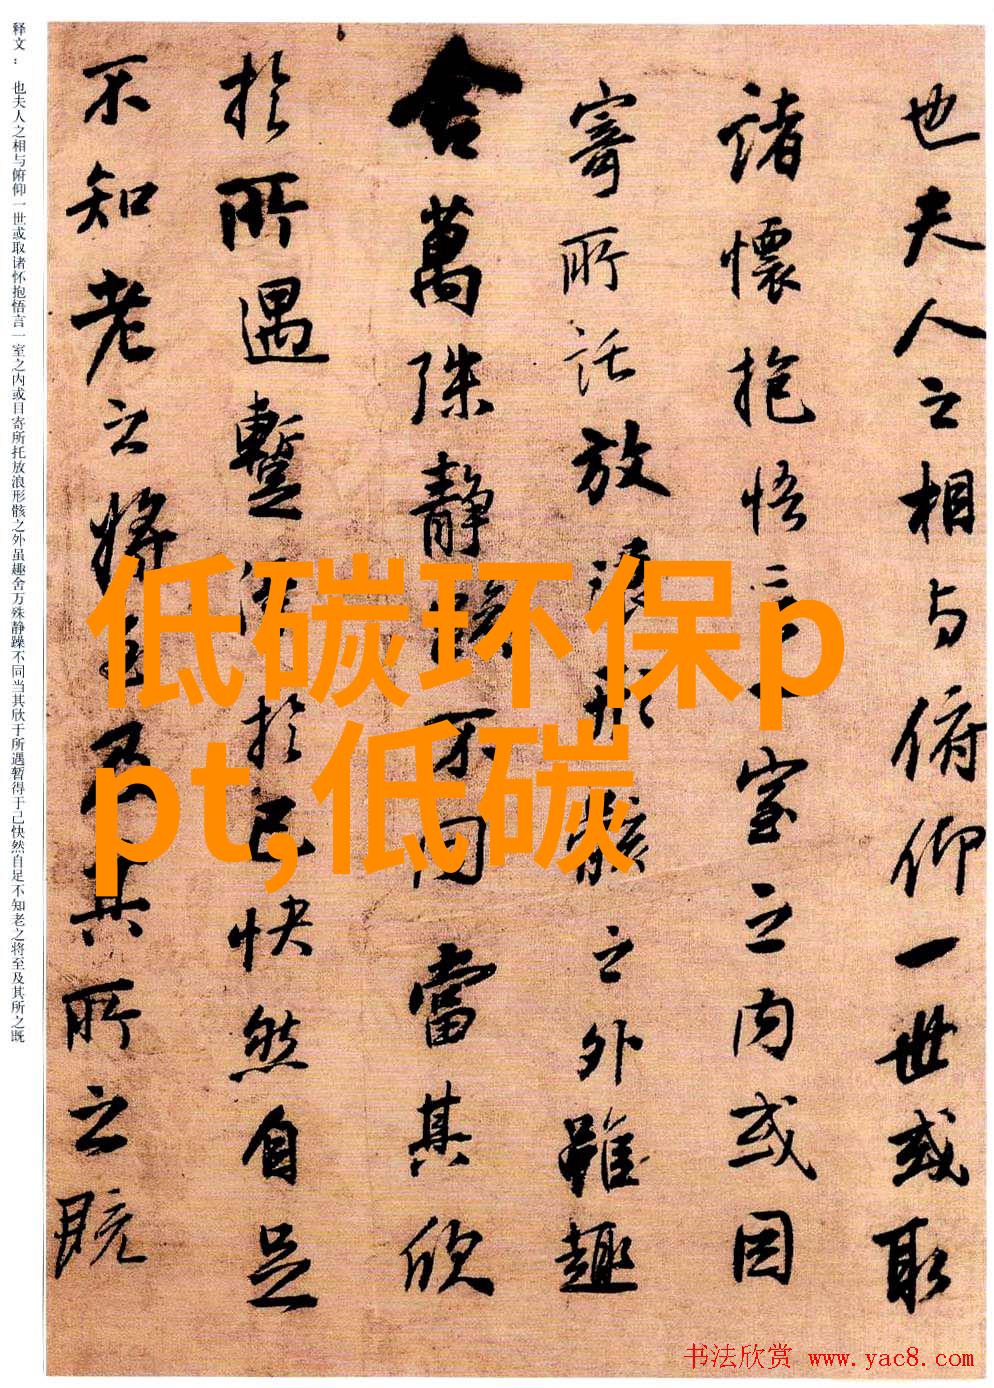 也夫人之相与俯仰一世或取
諸懷抱悟言一室之内或因
寄所託放浪形骸之外雖趣
舍萬殊静躁不同當其欣
於所遇蹔得於己快然自足
不知老之將至及其所之既
释文： 也夫人之相与俯仰一世或取诸怀抱悟言一室之内或目寄所托放浪形骸之外虽趣舍万殊静躁不同当其欣于所遇暂得于己快然自足不知老之将至及其所之既
低碳环保p
pt,低碳
书法欣赏 www.yac8.com